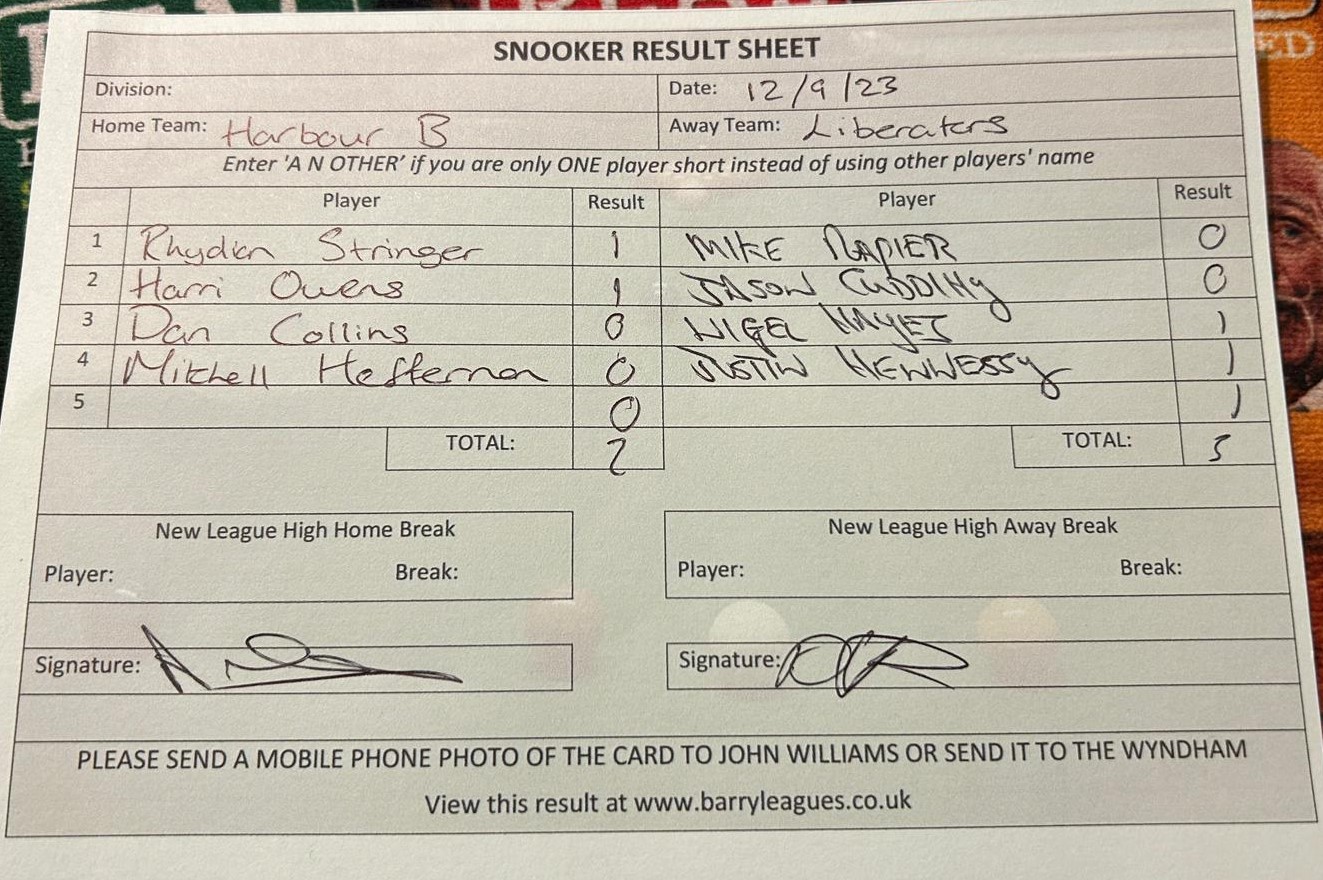 SNOOKER RESULT SHEET
Division: Date: 12/9/23
Home Team: Harbour B Away Team: Liberators
Enter 'A N OTHER' if you are only ONE player short instead of using other players' name
Player Result Player Result
1 Rhydian Stringer 1 MIKE NAPIER 0
2 Harri Owens 1 JASON CUDDIHY 0
3 Dan Collins 0 NIGEL HAYES 1
4 Mitchell Heffernan 0 JUSTIN HENNESSY 1
5 0 1
TOTAL: 2 TOTAL: 3
New League High Home Break New League High Away Break
Player: Break: Player: Break:
Signature: Signature:
PLEASE SEND A MOBILE PHONE PHOTO OF THE CARD TO JOHN WILLIAMS OR SEND IT TO THE WYNDHAM
View this result at www.barryleagues.co.uk